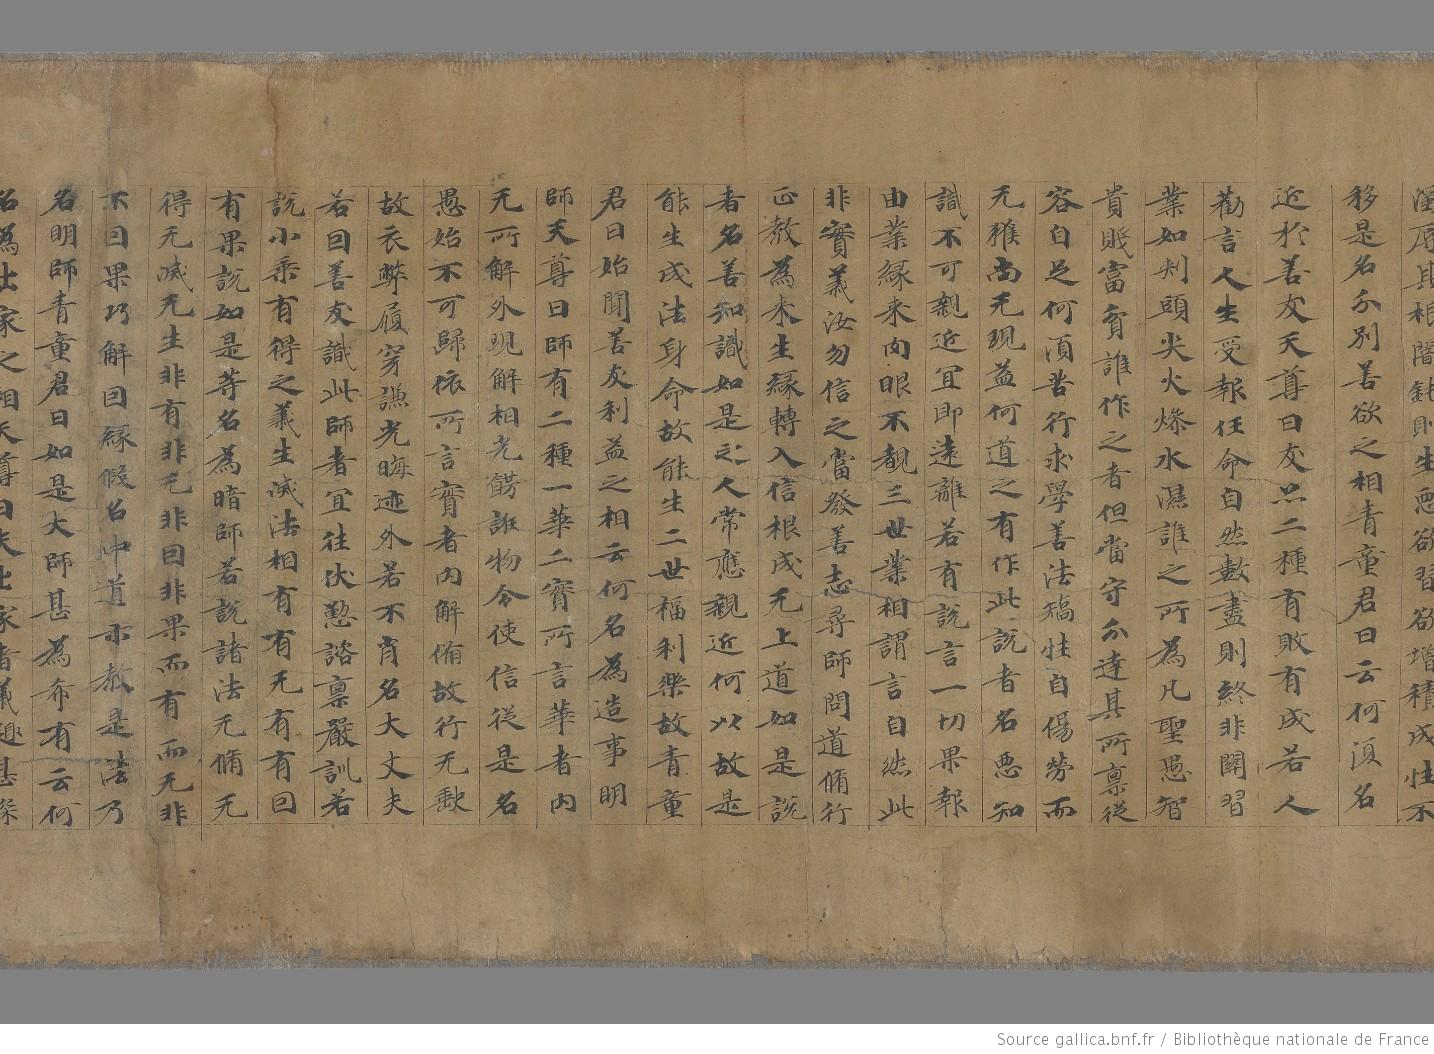 濁厚其根闇鈍則生惡欲習欲增積成性不
移是名分別善欲之相青童君曰云何復名
近於善友天尊曰友品二種有敗有成若人
勸言人生受報任命自然數盡則終非關習
業如判頭尖火燥水濕誰之所為凡聖愚智
貴賤富貧誰作之者但當守分達其所禀從
容自足何須苦行求學善法矯性自傷勞而
无獲尚无現益何道之有作此說者名惡知
識不可親近宜即遠離若有說言一切果報
由業緣来肉眼不覩三世業相謂言自然此
非實義汝勿信之當發善志尋師問道脩行
正教為来生緣轉入信根成无上道如是說
者名善知識如是之人常應親近何以故是
能生成法身命故能生二世福利樂故青童
君曰始聞善友利益之相云何名為造事明
師天尊曰師有二種一華二實所言華者内
无所解外現解相光餝誑物令使信從是名
愚始不可歸依所言實者内解脩故行无歝
故衣弊履穿謙光晦迹外若不肖名大丈夫
若回善友識此師者宜往伏懃諮禀嚴訓若
說小乘有得之義生滅法相有有无有有回
有果說如是等名為暗師若說諸法无脩无
得无滅无生非有非无非回非果而有而无非
不回果巧解回緣假名中道示教是法乃
名明師青童君曰如是大師甚為希有云何
名為出家之相天尊曰夫出家者義趣甚深